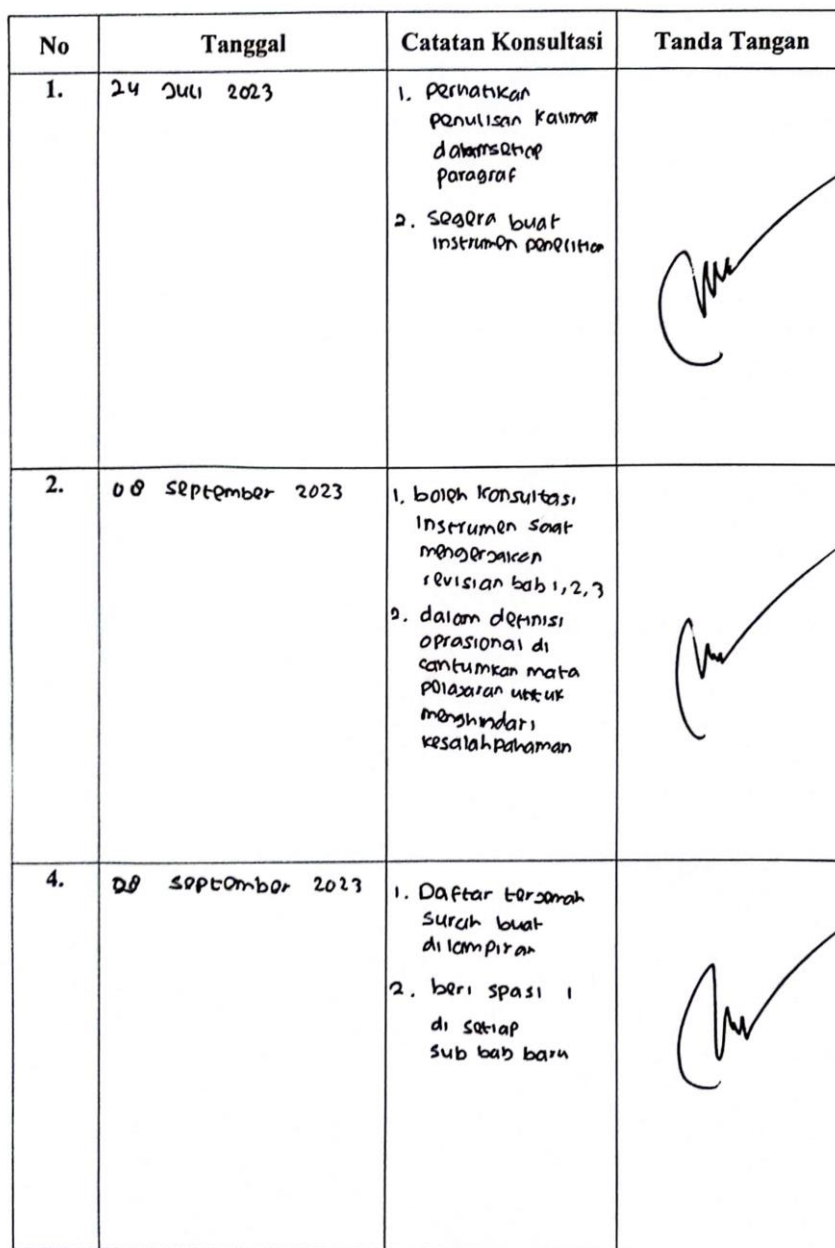 No Tanggal Catatan Konsultasi Tanda Tangan
1. 24 Juli 2023 1. Perhatikan
penulisan kalimat
dalam setiap
paragraf
2. segera buat
instrumen penelitian
2. 08 september 2023 1. boleh konsultasi
instrumen saat
mengerjakan
revisian bab 1, 2, 3
2. dalam definisi
oprasional di
cantumkan mata
pelajaran untuk
menghindari
kesalahpahaman
4. 28 september 2023 1. Daftar terjemah
surah buat
dilampiran
2. beri spasi 1
di setiap
sub bab baru